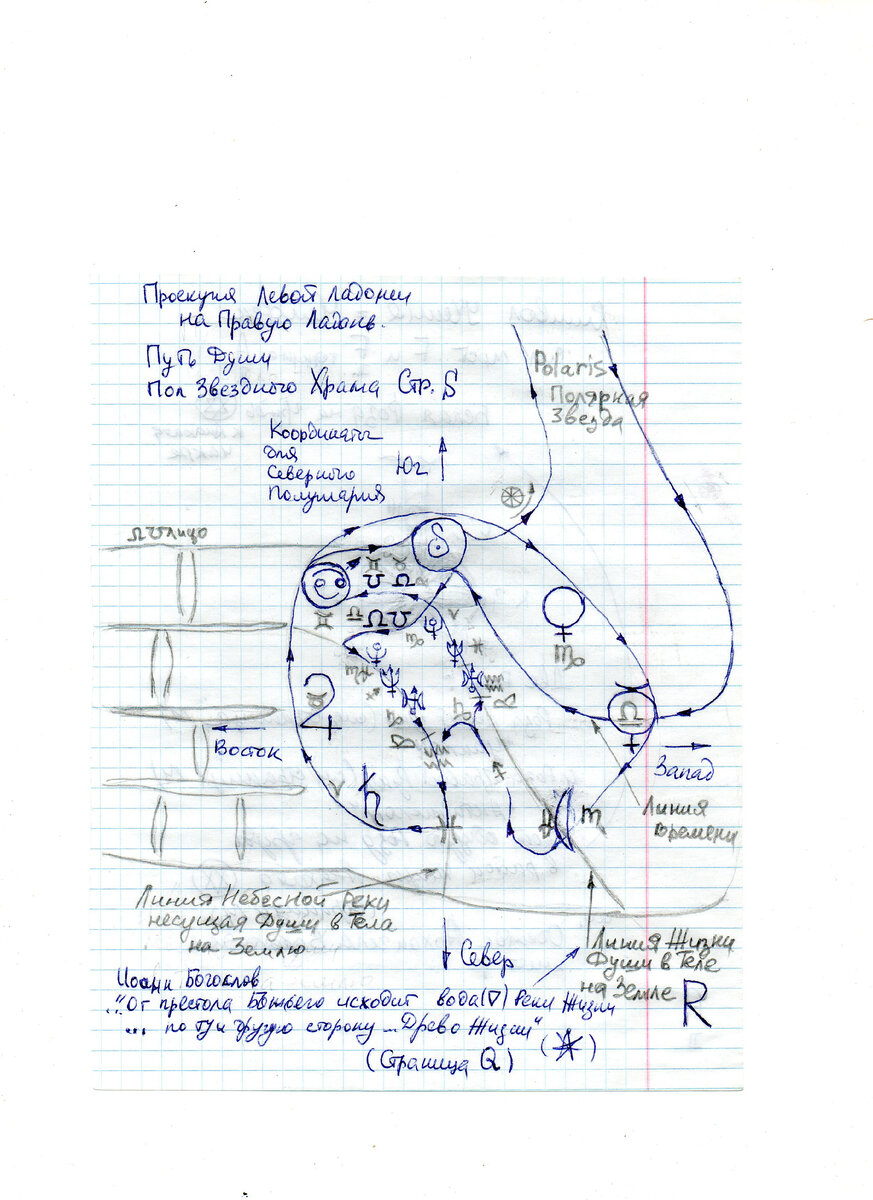 Проекция Левой Ладони
на Правую Ладонь.
Путь Души
Пол Звездного Храма Стр. S
Координаты
для
Северного
Полушария
Юг
Polaris
Полярная
Звезда
лицо
S
Восток
Запад
Линия
Времени
Линия Небесной Реки
несущая Души в Тела
на Землю
Север
Линия Жизни
Души в Теле
на Земле
R
Иоанн Богослов
"От престола Божьего исходит вода(∇) Реки Жизни
... по ту и другую сторону ... Древо Жизни"
(Страница Q)